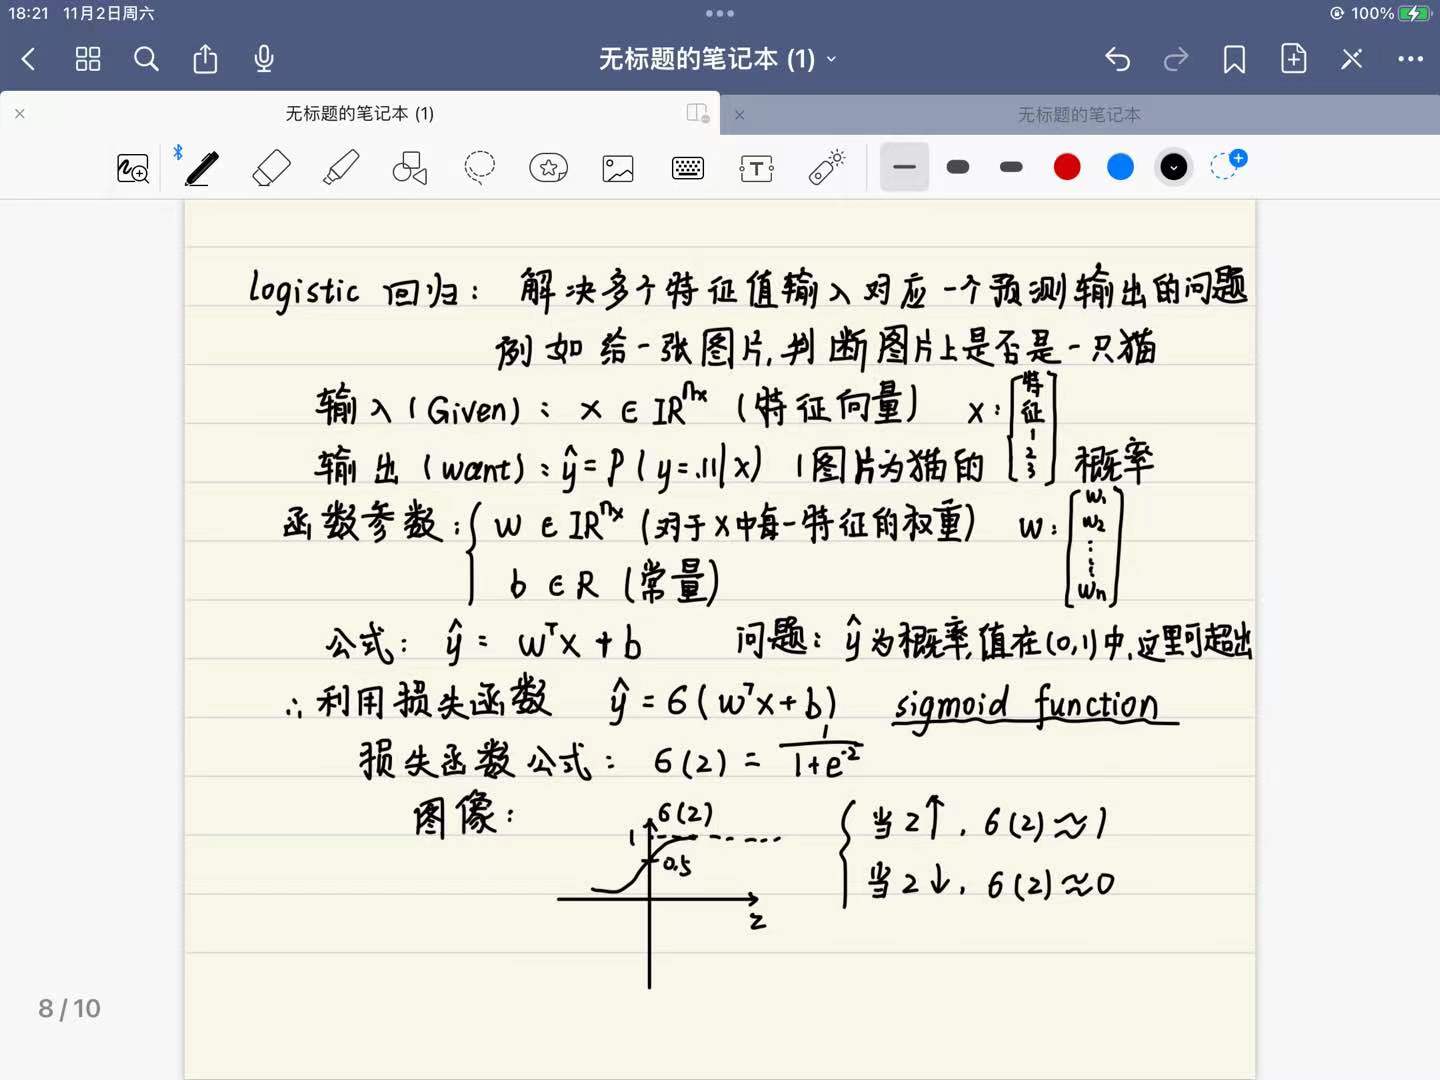 18:21 11月2日周六
100%
无标题的笔记本 (1)
无标题的笔记本 (1)
无标题的笔记本
T
logistic 回归: 解决多个特征值输入对应一个预测输出的问题
例如给一张图片,判断图片上是否是一只猫
输入(Given): x ∈ IRⁿˣ (特征向量) x: [特征 1 2 3]
输出(want): ŷ = P(y=.11|x) (图片为猫的 概率
函数参数: { w ∈ IRⁿˣ (对于x中每一特征的权重) w: [w₁ w₂ ⋮ wn]
b ∈ R (常量)
公式: ŷ = wᵀx + b 问题: ŷ为概率,值在(0,1)中,这里可超出
∴ 利用损失函数 ŷ = 6(wᵀx+b) sigmoid function
损失函数公式: 6(2) = 1/(1+e⁻²)
图像:
6(2)
1
0.5
z
{ 当2↑, 6(2)≈1
当2↓, 6(2)≈0
8 / 10